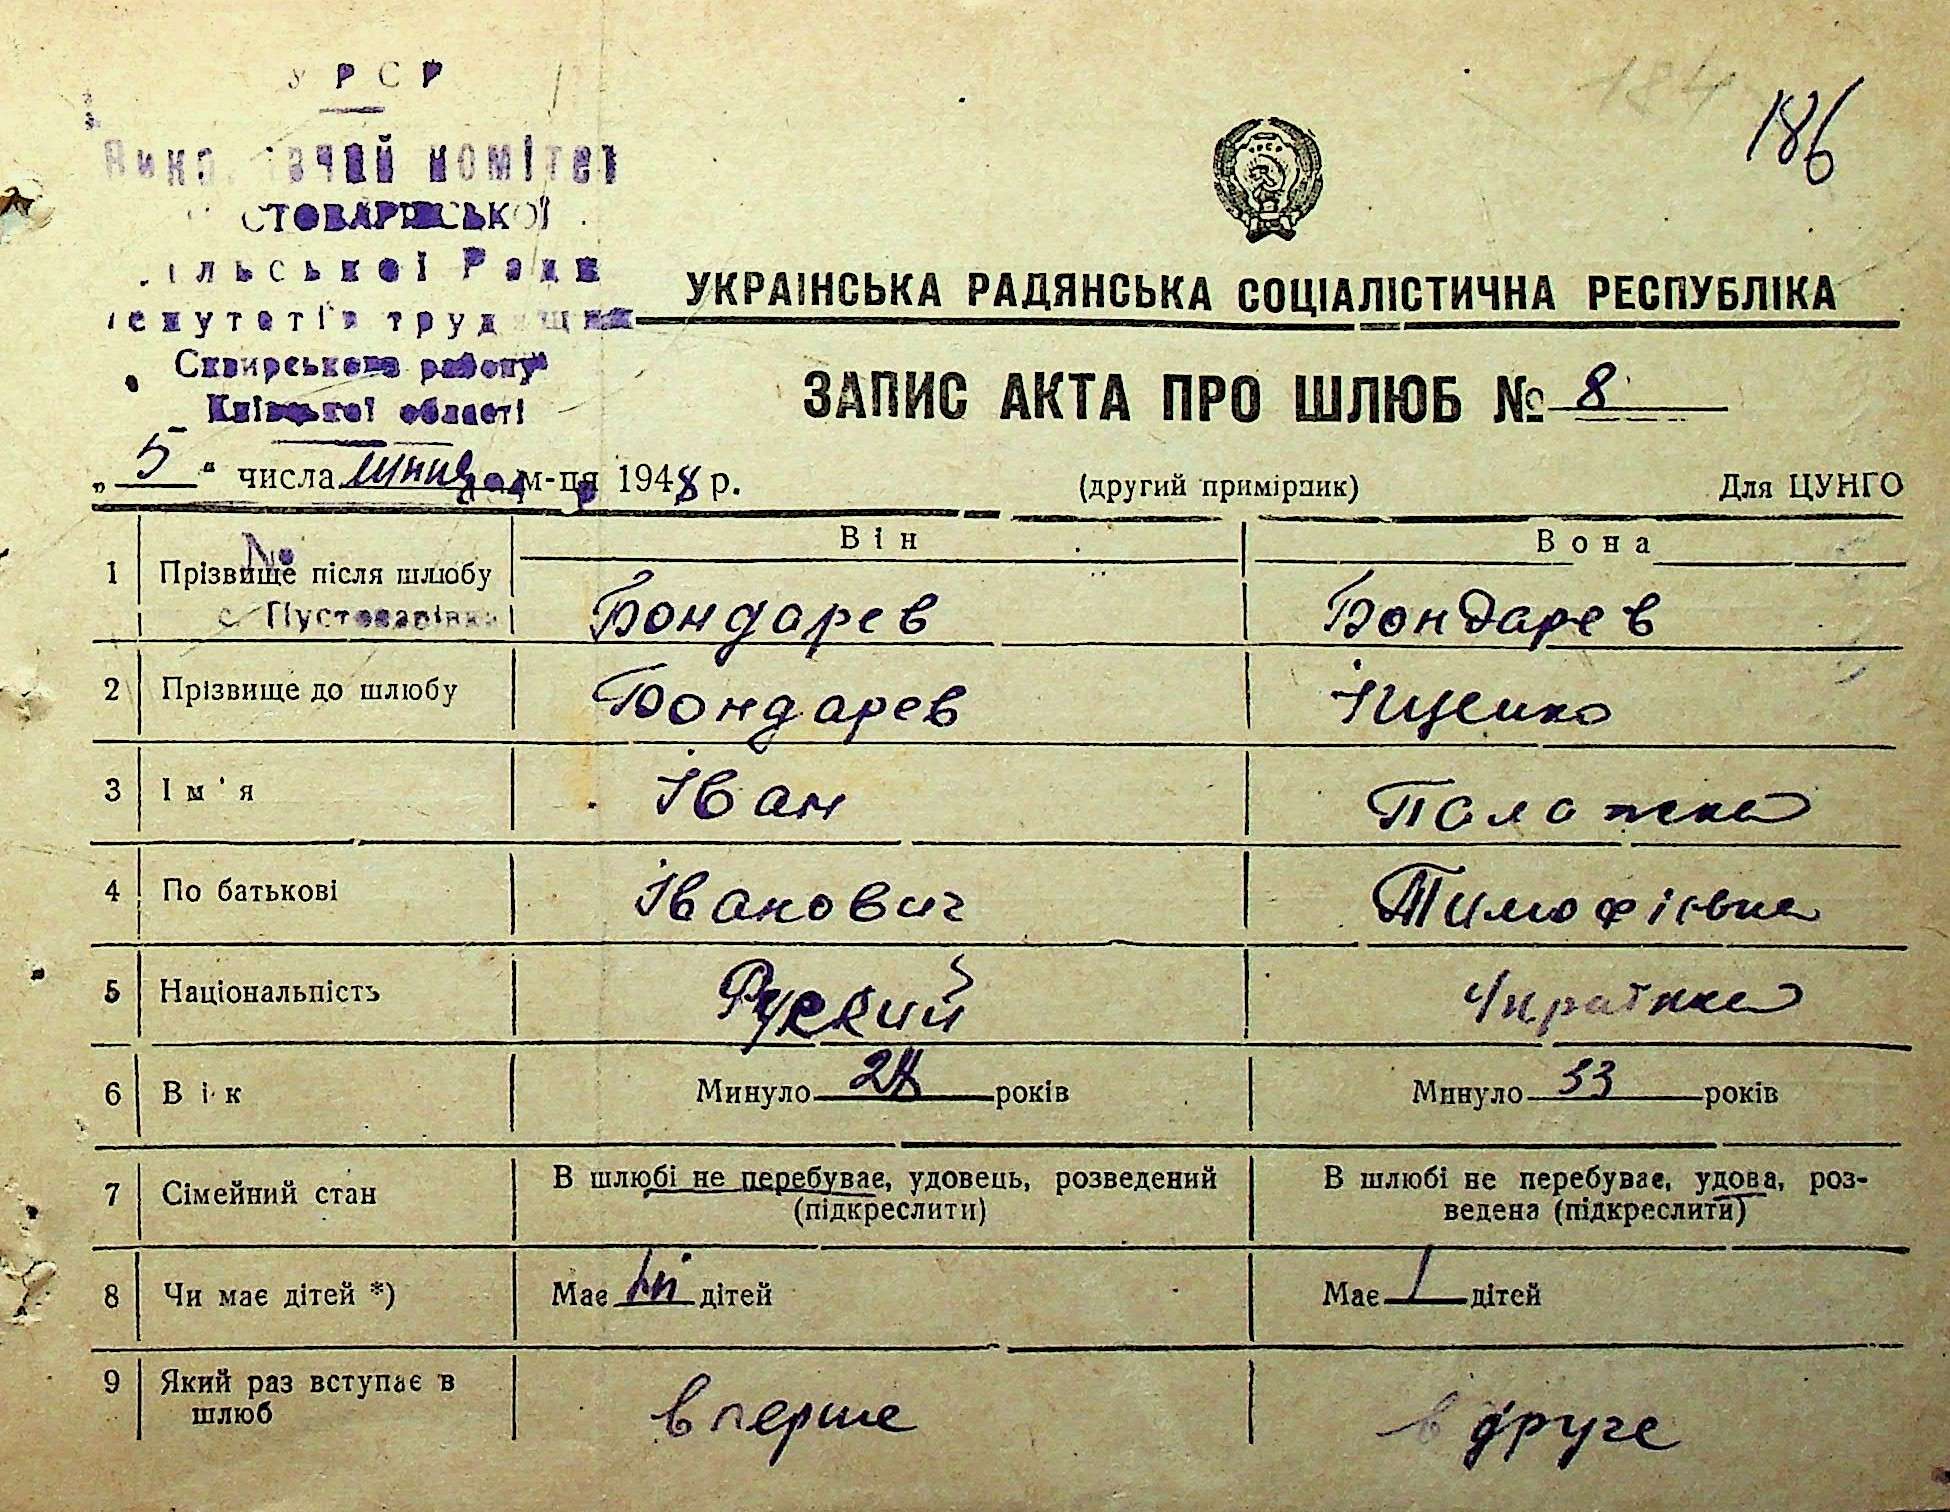 УРСР
комітет
СТОВАРІВСЬКОЇ
ільської Ради
депутатів трудящих
Сквирського району
Київської області
184
186
УРСР
УКРАЇНСЬКА РАДЯНСЬКА СОЦІАЛІСТИЧНА РЕСПУБЛІКА
ЗАПИС АКТА ПРО ШЛЮБ № 8
„5“ числа м-ця 1948 р. (другий примірник) Для ЦУНГО
№
Він Вона
1 Прізвище після шлюбу Бондарев Бондарев
с. Пустоварівка
2 Прізвище до шлюбу Бондарев Іщенко
3 Ім'я Іван Палажка
4 По батькові Іванович Тимофієвна
5 Національність Руский Українка
6 Вік Минуло років Минуло 33 років
7 Сімейний стан В шлюбі не перебуває, удовець, розведений (підкреслити) В шлюбі не перебуває, удова, розведена (підкреслити)
8 Чи має дітей *) Має ні дітей Має 1 дітей
9 Який раз вступає в шлюб вперше вдруге